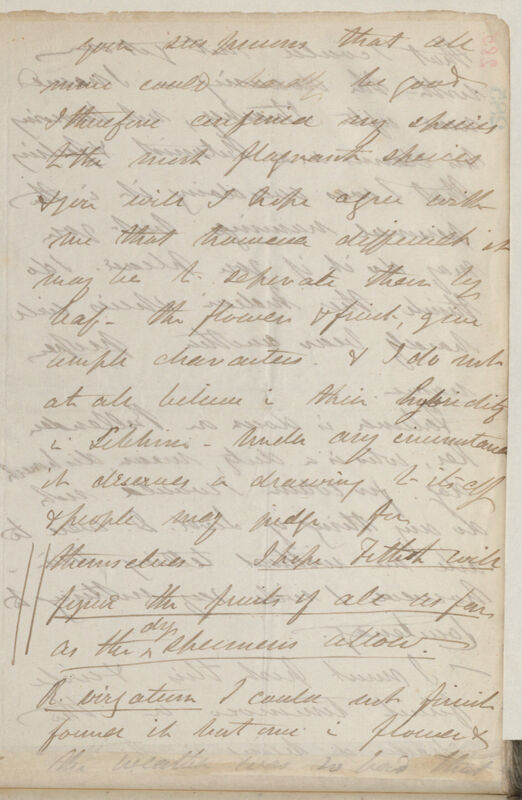 your suspicions that all
mine could hardly be good
I therefore confined my species
to the most flagrant species
& you will I hope agree with
me that however difficult it
may be to seperate them by
leaf - the flowers & fruit, give
ample characters. & I do not
at all believe in their hybridity
in Sikkim - Under any circumstance
it deserves a drawing to itself
& people may judge for
themselves I hope Fitch will
figure the fruits of all as far
as the dry specimens allow.
R. virgatum I could not finish
found it but once in flower &
the weather was so bad that